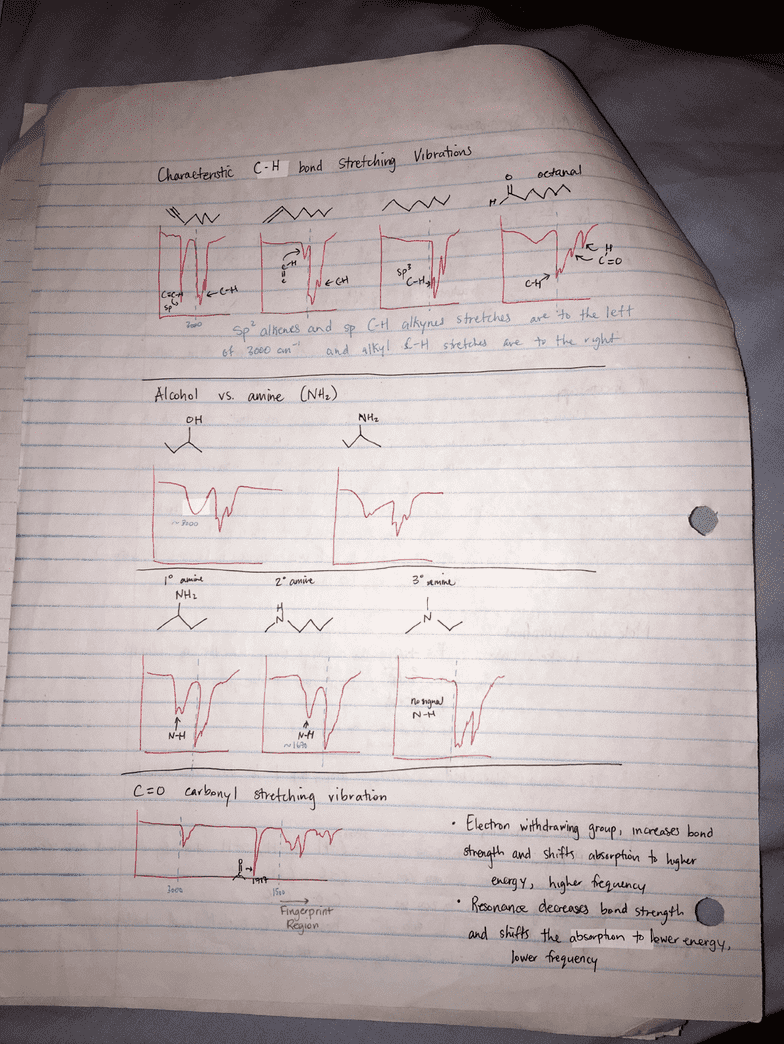 Characteristic C-H bond Stretching Vibrations
O octanal
H
C≡C-H
sp
C-H
3000
H
C-H
sp³
C-H
C-H
H
C=O
Sp² alkenes and sp C-H alkynes stretches are to the left
of 3000 cm⁻¹ and alkyl C-H stretches are to the right
Alcohol vs. amine (NH₂)
OH
NH₂
~3000
1° amine
2° amine
3° amine
NH₂
H
N
N
N-H
N-H
no signal
N-H
C=O carbonyl stretching vibration
3000
1500
Fingerprint
Region
• Electron withdrawing group, increases bond
strength and shifts absorption to higher
energy, higher frequency
• Resonance decreases bond strength
and shifts the absorption to lower energy,
lower frequency